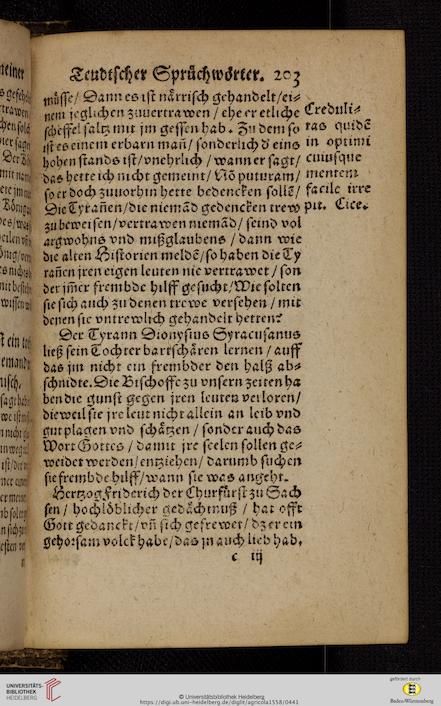 Teudtscher Sprüchwörter. 203
müsse/ Dann es ist närrisch gehandelt/ei-
nem jeglichen zuuertrawen/ehe er etliche
scheffel saltz mit jm gessen hab. Zu dem so
ist es einem erbarn mañ/ sonderlich d̕ eins
hohen stands ist/vnehrlich/wann er sagt/
das hette ich nicht gemeint/Nō puturam/
so er doch zuuorhin hette bedencken solle̅/
Die Tyrañen/die niema̅d gedencken trew
zu beweisen/vertrawen niema̅d/ seind vol
argwohns vnd mißglaubens/dann wie
die alten Historien melde̅/so haben die Ty
rañen jren eigen leuten nie vertrawet/son
der jm̃er frembde hilff gesucht/Wie solten
sie sich auch zu denen trewe versehen/mit
denen sie vntrewlich gehandelt hetten?
Der Tyrann Dionysius Syracusanus
ließ sein Tochter bartschären lernen/auff
das jm nicht ein frembder den halß ab-
schnidte. Die Bischoffe zu vnsern zeiten ha
ben die gunst gegen jren leuten verloren/
dieweil sie jre leut nicht allein an leib vnd
gut plagen vnd schätzen/ sonder auch das
Wort Gottes/damit jre seelen sollen ge-
weidet werden/entziehen/darumb suchen
sie frembde hilff/wann sie was angeht.
Hertzog Friderich der Churfürst zu Sach
sen/ hochlöblicher gedächtnuß/ hat offt
Gott gedanckt/vñ sich gefrewet/dz er ein
gehorsam volck habe/das jn auch lieb hab,
c iij
Creduli-
tas quide̅
in optimi
cuiusque
mentem
facile irre
pit. Cice.
UNIVERSITÄTS-
BIBLIOTHEK
HEIDELBERG
© Universitätsbibliothek Heidelberg
https://digi.ub.uni-heidelberg.de/diglit/agricola1558/0441
gefördert durch
Baden-Württemberg